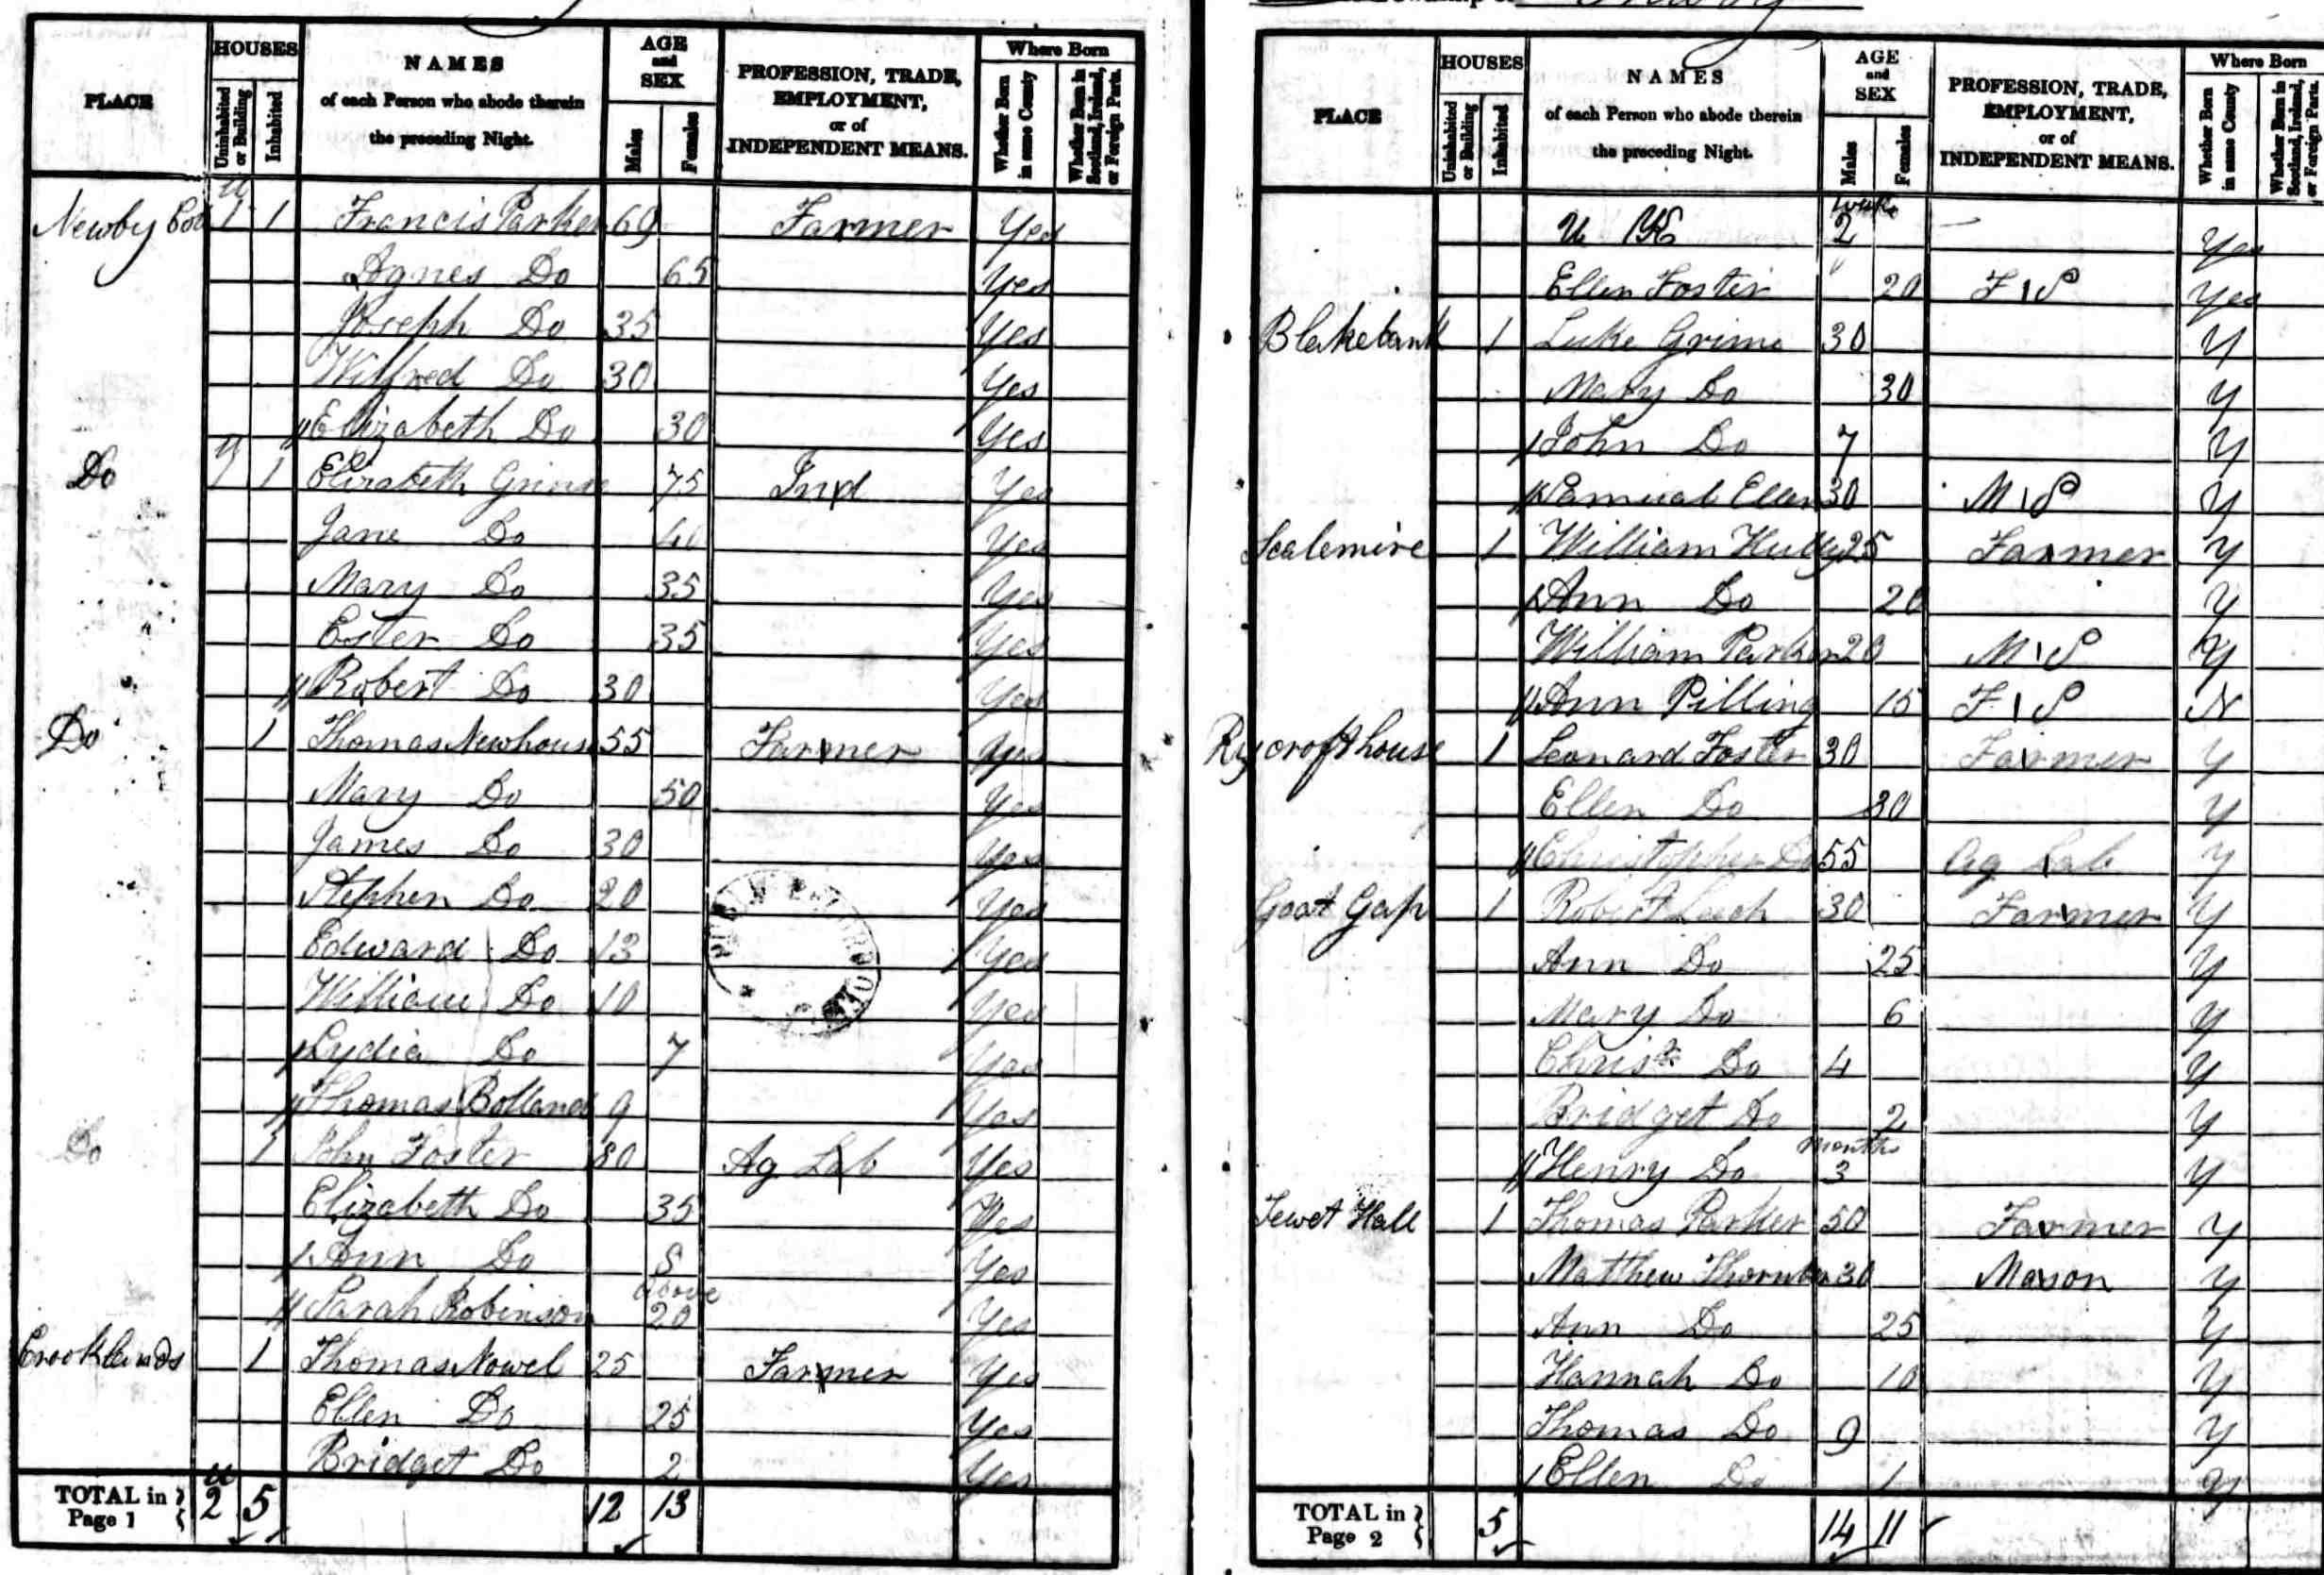 PLACE HOUSES Uninhabited or Building Inhabited NAMES of each Person who abode therein the preceding Night. AGE and SEX Males Females PROFESSION, TRADE, EMPLOYMENT, or of INDEPENDENT MEANS. Where Born Whether Born in same County Whether Born in Scotland, Ireland, or Foreign Parts.
Newby u 1 1 Francis Parker 69 Farmer Yes
Agnes Do 65 Yes
Joseph Do 35 Yes
Wilfred Do 30 Yes
Elizabeth Do 30 Yes
Do u 1 1 Elizabeth Grime 75 Ind Yes
Jane Do 40 Yes
Mary Do 35 Yes
Ester Do 35 Yes
Robert Do 30 Yes
Do 1 Thomas Newhouse 55 Farmer Yes
Mary Do 50 Yes
James Do 30 Yes
Stephen Do 20 Yes
Edward Do 13 Yes
William Do 10 Yes
Lydia Do 7 Yes
Thomas Bolland 9 Yes
Do 1 John Foster 80 Ag Lab Yes
Elizabeth Do 35 Yes
Ann Do 8 Yes
above
Sarah Robinson 20 Yes
Crooklands 1 Thomas Nowel 25 Farmer Yes
Ellen Do 25 Yes
Bridget Do 2 Yes
TOTAL in Page 1 u 2 5 12 13
PLACE HOUSES Uninhabited or Building Inhabited NAMES of each Person who abode therein the preceding Night. AGE and SEX Males Females PROFESSION, TRADE, EMPLOYMENT, or of INDEPENDENT MEANS. Where Born Whether Born in same County Whether Born in Scotland, Ireland, or Foreign Parts.
weeks
2 Yes
Ellen Foster 20 F S Yes
Blakebank 1 Luke Grime 30 Y
Mary Do 30 Y
John Do 7 Y
Samual 30 M S Y
Scalemire 1 William 25 Farmer Y
Ann Do 20 Y
William Parker 20 M S Y
Ann Pilling 15 F S N
Rycrofthouse 1 Leonard Foster 30 Farmer Y
Ellen Do 30 Y
Christopher Do 55 Ag Lab Y
Goat Gap 1 Robert Leech 30 Farmer Y
Ann Do 25 Y
Mary Do 6 Y
Chrisr Do 4 Y
Bridget Do 2 Y
months
Henry Do 3 Y
Tewet Hall 1 Thomas Parker 50 Farmer Y
Matthew Thornber 30 Mason Y
Ann Do 25 Y
Hannah Do 10 Y
Thomas Do 9 Y
Ellen Do 1 Y
TOTAL in Page 2 5 14 11